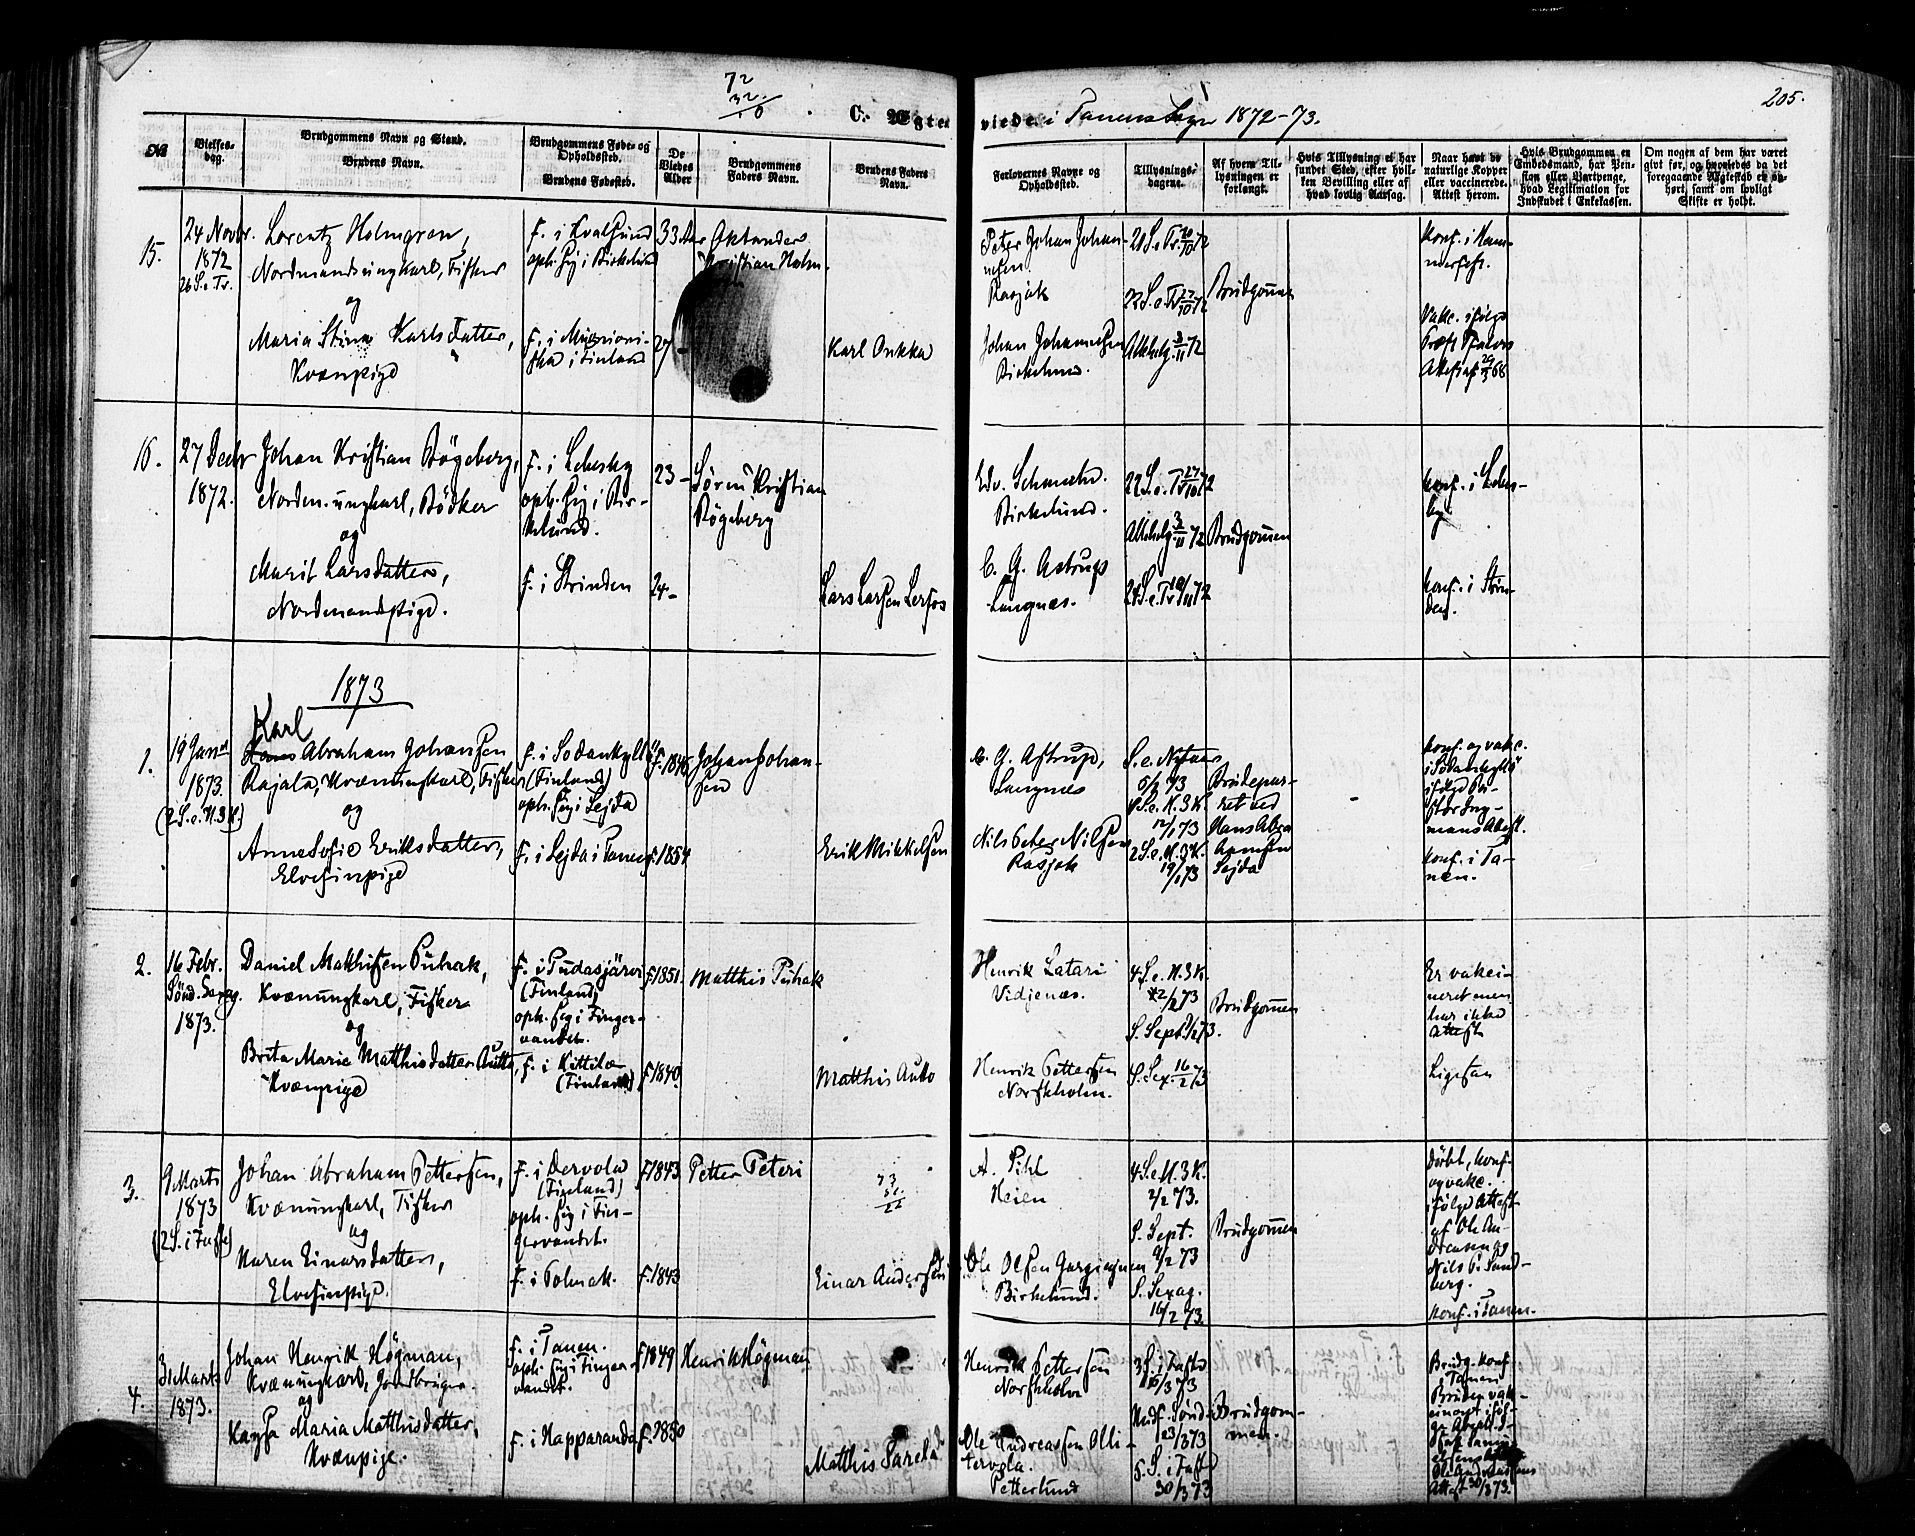 72
32
0
C. Ægteviede i Tanens Sogn 1872-73.
205.
No
Vielses-
dag.
Brudgommens Navn og Stand.
Brudens Navn.
Brudgommens Føde- og
Opholdssted.
Brudens Fødested.
De
Viedes
Alder
Brudgommens
Faders Navn.
Brudens Faders
Navn.
Forlovernes Navne og
Opholdssted.
Tillysnings-
dagene.
Af hvem Til-
lysningen er
forlangt.
Hvis Tillysning ei har
fundet Sted, efter hvil-
ken Bevilling eller af
hvad lovlig Aarsag.
Naar havt de
naturlige Kopper
eller vaccinerede.
Attest herom.
Hvis Brudgommen en
Embedsmand, har Pen-
sion eller Vartpenge,
hvad Legitimation for
Indskudet i Enkekassen.
Om nogen af dem har været
givt før, og hvorledes da det
foregaaende Ægteskab er op-
hørt, samt om lovligt
Skifte er holdt.
15.
24 Novbr.
1872
26 S. e. Tr.
Lorentz Holmgren,
Nordmandsungkarl, Fisker
og
Maria Stina Karlsdatter,
Kvænpige
F. i Kvalsund
oph. sig i Birkelund
F. i
i Finland
33 Aar
27 -
Kristian Holm-
Karl Onkka
Peter Johan Johan-
nesen
Rasjok
Johan Johannesen
Birkelund.
21 S. e. Tr. 20/10 72
22 S. e. Tr. 27/10 72
Allehelg. 3/11 72
Brudgommen
Konf. i Ham-
merfest.
Vakc. ifølge
Attest af 29/3 68
16.
27 Decbr
1872.
Johan Kristian Bøgeberg,
Nordm. ungkarl, Bødker
og
Marit Larsdatter,
Nordmandspige.
F. i Lebesby
oph. sig i Bir-
kelund.
F. i Strinden
23 -
24 -
Søren Kristian
Bøgeberg
Lars Larsen Lerfos
Birkelund.
C. G. Astrup
Langnes.
22 S. e. Tr. 27/10 72
Allehelg. 3/11 72
24 S. e. Tr. 10/11 72
Brudgommen
Konf. i Lebes-
by
Konf. i Strin-
den.
1873
1.
19 Januar
1873.
(2 S. e. H. 3 K.)
Karl
Hans Abraham Johansen
Rajala, Kvænungkarl, Fisker
og
Anne Sofie Eriksdatter,
Elvefinpige
F. i Sodankylä
(Finland)
oph. sig i Sejda
F. i Sejda i Tanen
F. 1846
F. 1854
Johan Johan-
sen
Erik Mikkelsen
C. G. Astrup,
Langnes
Nils Peter Nilsen
Rasjok
S. e. Nytaar
5/1 73
1 S. e. H. 3 K.
12/1 73
2 S. e. H. 3 K.
19/1 73
Brudepar-
ret ved
Hans Abra
Sejda
Konf. og vakc.
i Sodankylä
ifølge Pa-
stor Ing-
mans Attest.
Konf. i Ta-
nen.
2.
16 Febr.
Sønd. Sexag.
1873.
Daniel Matthisen Puhak,
Kvænungkarl, Fisker
og
Brita Marie Matthisdatter Autto,
Kvænpige
F. i Pudasjärvi
(Finland)
oph. sig i Finger-
vandet.
F. i Kittilæ
(Finland)
F. 1851.
F. 1840.
Matthis Puhak
Matthis Auto
Henrik Latari
Vidjenæs.
Henrik Pettersen
Norskholm.
4 S. e. H. 3 K.
2/2 73
S. Sept. 9/2 73.
S. Sex. 16/2 73
Brudgommen
Er vakci-
neret men
har ikke
Attest
Ligesaa
3.
9 Marts
1873
(2 S. i Faste)
Johan Abraham Pettersen,
Kvænungkarl, Fisker
og
Karen Einarsdatter,
Elvefinpige.
F. i Tervola
(Finland)
oph. sig i Fin-
gervandet.
F. i Polmak.
F. 1843
F. 1843
Petter Peteri
73
51
22
Einar Andersen
A. Pihl
Heien
Ole Olsen
Birkelund.
4 S. e. H. 3 K.
2/2 73.
S. Sept.
9/2 73
S. Sexag.
16/2 73
Brudgommen
Døbt, Konf.
og vakc.
ifølge Attest
af Ole An-
dreasen og
Nils P. Sand-
berg.
Konf. i Tanen.
4.
31 Marts
1873.
Johan Henrik Högman,
Kvænungkarl, Jordbruger
og
Kaysa Maria Matthisdatter,
Kvænpige.
F. i Tanen.
oph. sig i Finger-
vandet.
F. i Happaranda
F. 1849
F. 1850
Henrik Högman
Matthis Sarela
Henrik Pettersen
Norskholm
Ole Andreassen Olli-
tervola.
Petterlund
3 S. i Faste
16/3 73
Midf. Sønd.
23/3 73
5. S. i Faste
30/3 73
Brudgom-
men.
Brudg. Konf.
i Tanen
Bruden vak-
Attest 30/3 73.